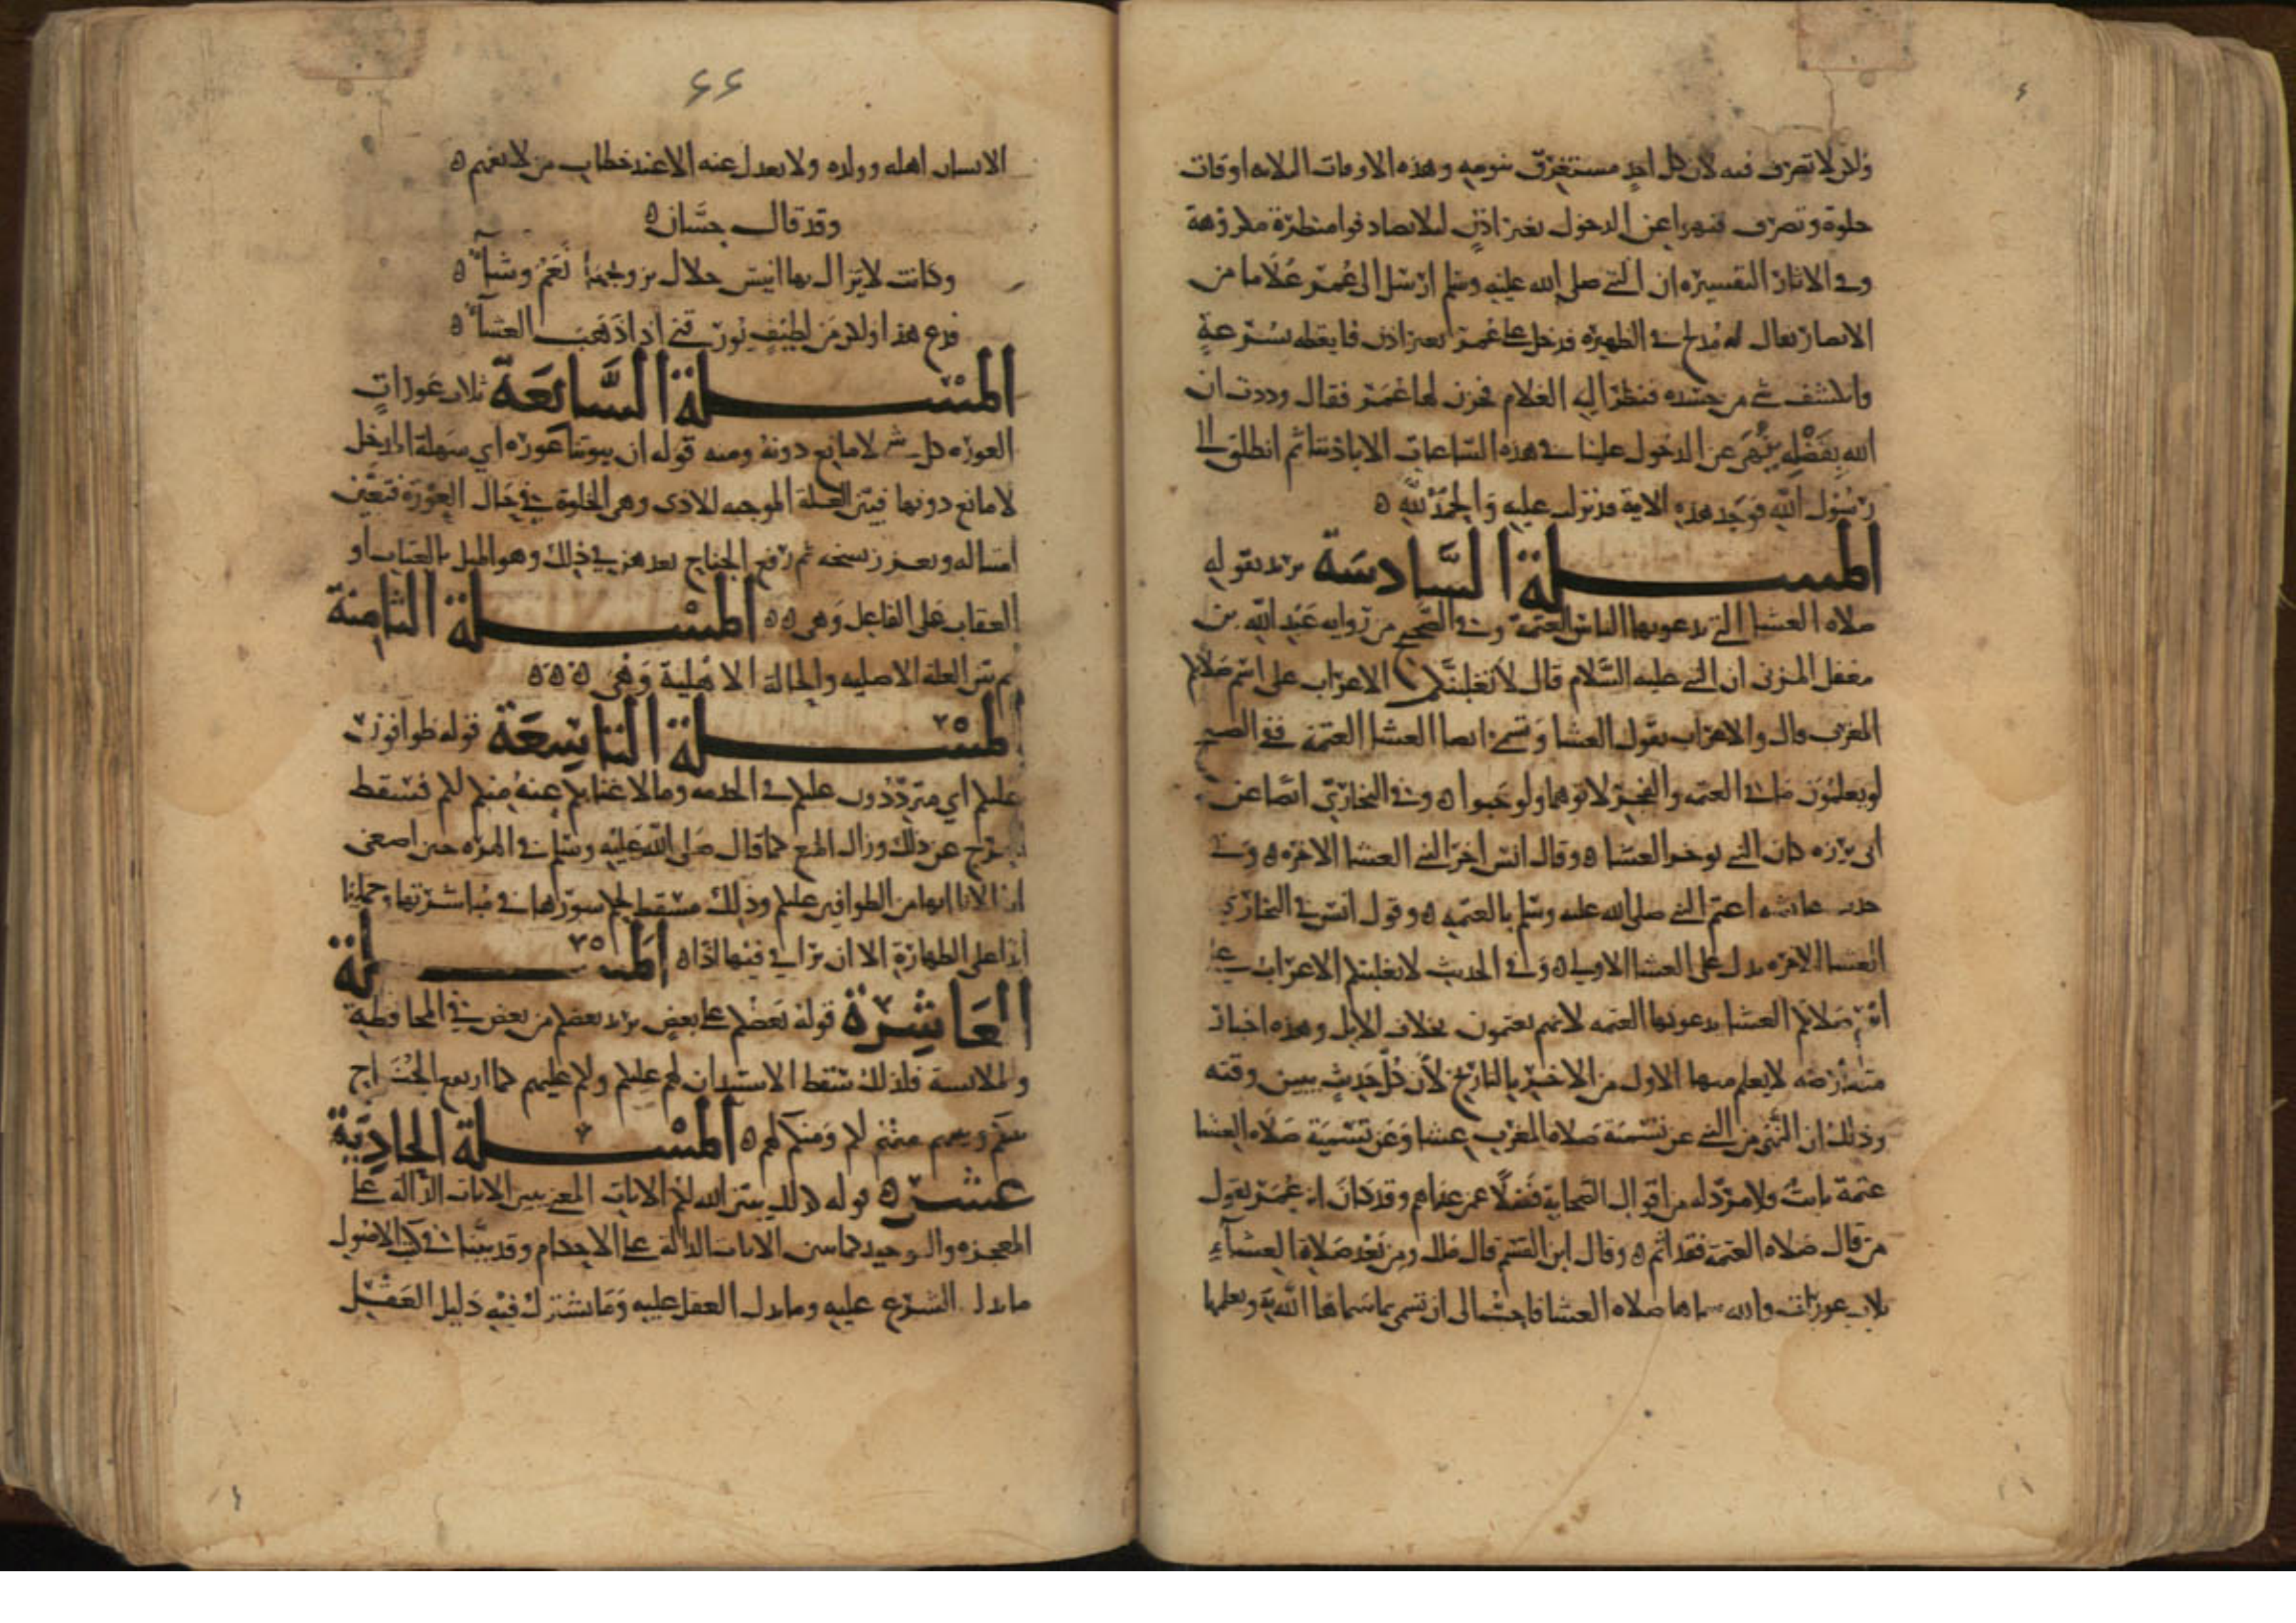 ولكن لا تصرف فيه لان كل احد مستغرق بنومه وهذه الاوقات الثلاثة اوقات
خلوة وتصرف فنهوا عن الدخول بغير اذن لئلا يصادفوا منظرة مكروهة
وفي الاثار التفسيرية ان النبي صلى الله عليه وسلم ارسل الى عمر غلاما من
الانصار يقال له مدلج في الظهيرة فدخل على عمر بغير اذن فايقظه بسرعة
وانكشف شي من جسده فنظر اليه الغلام فحزن لها عمر فقال وددت ان
الله بفضله نهى عن الدخول علينا في هذه الساعات الا باذننا ثم انطلق الى
رسول الله فوجد هذه الاية قد نزلت عليه والحمد لله ه
المسلة السادسة يريد بقوله
صلاة العشا التي يدعوها الناس العتمة وفي الصحيح من رواية عبد الله بن
مغفل المزني ان النبي عليه السلام قال لا تغلبنكم الاعراب على اسم صلاتكم
المغرب قال والاعراب تقول العشا وتسمى ايضا العشا العتمة ففي الصحيح
لو يعلمون ما في العتمة والفجر لاتوهما ولو حبوا ه وفي البخاري ايضا عن
ابي برزة كان النبي يوخر العشا ه وقال انس اخر النبي العشا الاخرة ه وفي
حديث عائشة اعتم النبي صلى الله عليه وسلم بالعتمة ه وقول انس في البخاري
العشا الاخرة يدل على العشا الاولى ه وفي الحديث لا تغلبنكم الاعراب على
اسم صلاتكم العشا يدعونها العتمة لانهم يعتمون بحلاب الابل وهذه اخبار
متعارضة لا يعلم منها الاول من الاخير بالتاريخ لان كل حديث يبين وقته
وذلك ان النهي من النبي عن تسمية صلاة المغرب عشا وعن تسمية صلاة العشا
عتمة ثابت فلا مرد له من اقوال الصحابة فضلا عمن عداهم وقد كان ابن عمر يقول
من قال صلاة العتمة فقد اثم ه وقال ابن القسم قال ملك ومن بعد صلاة العشاء
ثلاث عورات والله سماها صلاة العشا فاحب الي ان تسمى بما سماها الله به ويعلمها
٦٦
الانسان اهله وولده ولا يعدل عنه الا عند خطاب من لا يفهم ه
وقد قال حسان ه
وكانت لا يزال بها انيس خلال مروجها نعم وشاء ه
فدع هذا ولكن من لطيف يورقني اذا ذهب العشاء ه
المسلة السابعة ثلاث عورات
العورة كل شي لا مانع دونه ومنه قوله ان بيوتنا عورة اي سهلة المدخل
لا مانع دونها فبين العلة الموجبة للاذن وهي الخلوة في حال العورة فتعين
امتثاله وتعذر نسخه ثم رفع الجناح بعدهن في ذلك وهو الميل بالعتاب او
العقاب على الفاعل وهي ه ه المسلة الثامنة
ثم بين العلة الاصلية والحالة الاهلية وهي ه ه ه
المسلة التاسعة قوله طوافون
عليكم اي مترددون عليكم في الخدمة وما لا غنا بكم عنه منهم لكم فسقط
الحرج عن ذلك وزال المنع كما قال صلى الله عليه وسلم في الهرة حين اصغى
لها الانا انها من الطوافين عليكم وذلك مسقط لحكم سورها في مباشرتها وحملها
ابدا على الطهارة الا ان يرا في فيها اذا ه المسلة
العاشرة قوله بعضكم على بعض يريد بعضكم من بعض في المخالطة
والملابسة فلذلك سقط الاستيذان لهم عليكم ولكم عليهم كما ارتفع الجناح
بينكم وبينهم منهم لكم ومنكم لهم ه المسلة الحادية
عشر ه قوله كذلك يبين الله لكم الايات المعنى يبين الايات الدالة على
المعجزة والتوحيد كما يبين الايات الدالة على الاحكام وقد بينا في كتب الاصول
ما يدل الشرع عليه وما يدل العقل عليه وما يشترك فيه دليل العقل